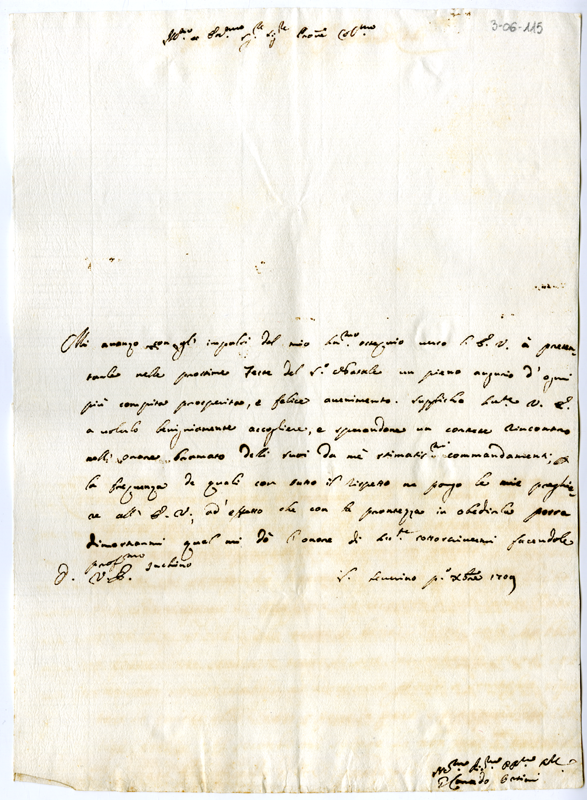 3-06-115
Ill.mo et Ecc.mo Sig.re Sig.re Padrone Col.mo
Mi avanzo con gl'impulsi del mio hu.mo ossequio verso l'E. V. à presen-
tarle nelle prossime Feste del S.o Natale un pieno augurio d'ogni
più compita prosperità, e felice avenimento. Supplico hu.te V. E.
a volerlo benignamente accogliere, e spendone un cortese rincontro
nell'onore bramato delli suoi da mè stimatis.mi commandamenti;
la frequenza de quali con tutto il rispetto ne porgo le mie preghie-
re all'E. V., ad'effetto che con la prontezza in obedirla possa
dimostrarmi quel mi dò l'onore di hu.te sottoscrivermi facendole
prof.mo Inchino
D. V. E. S. Severino p.o Xbre 1709